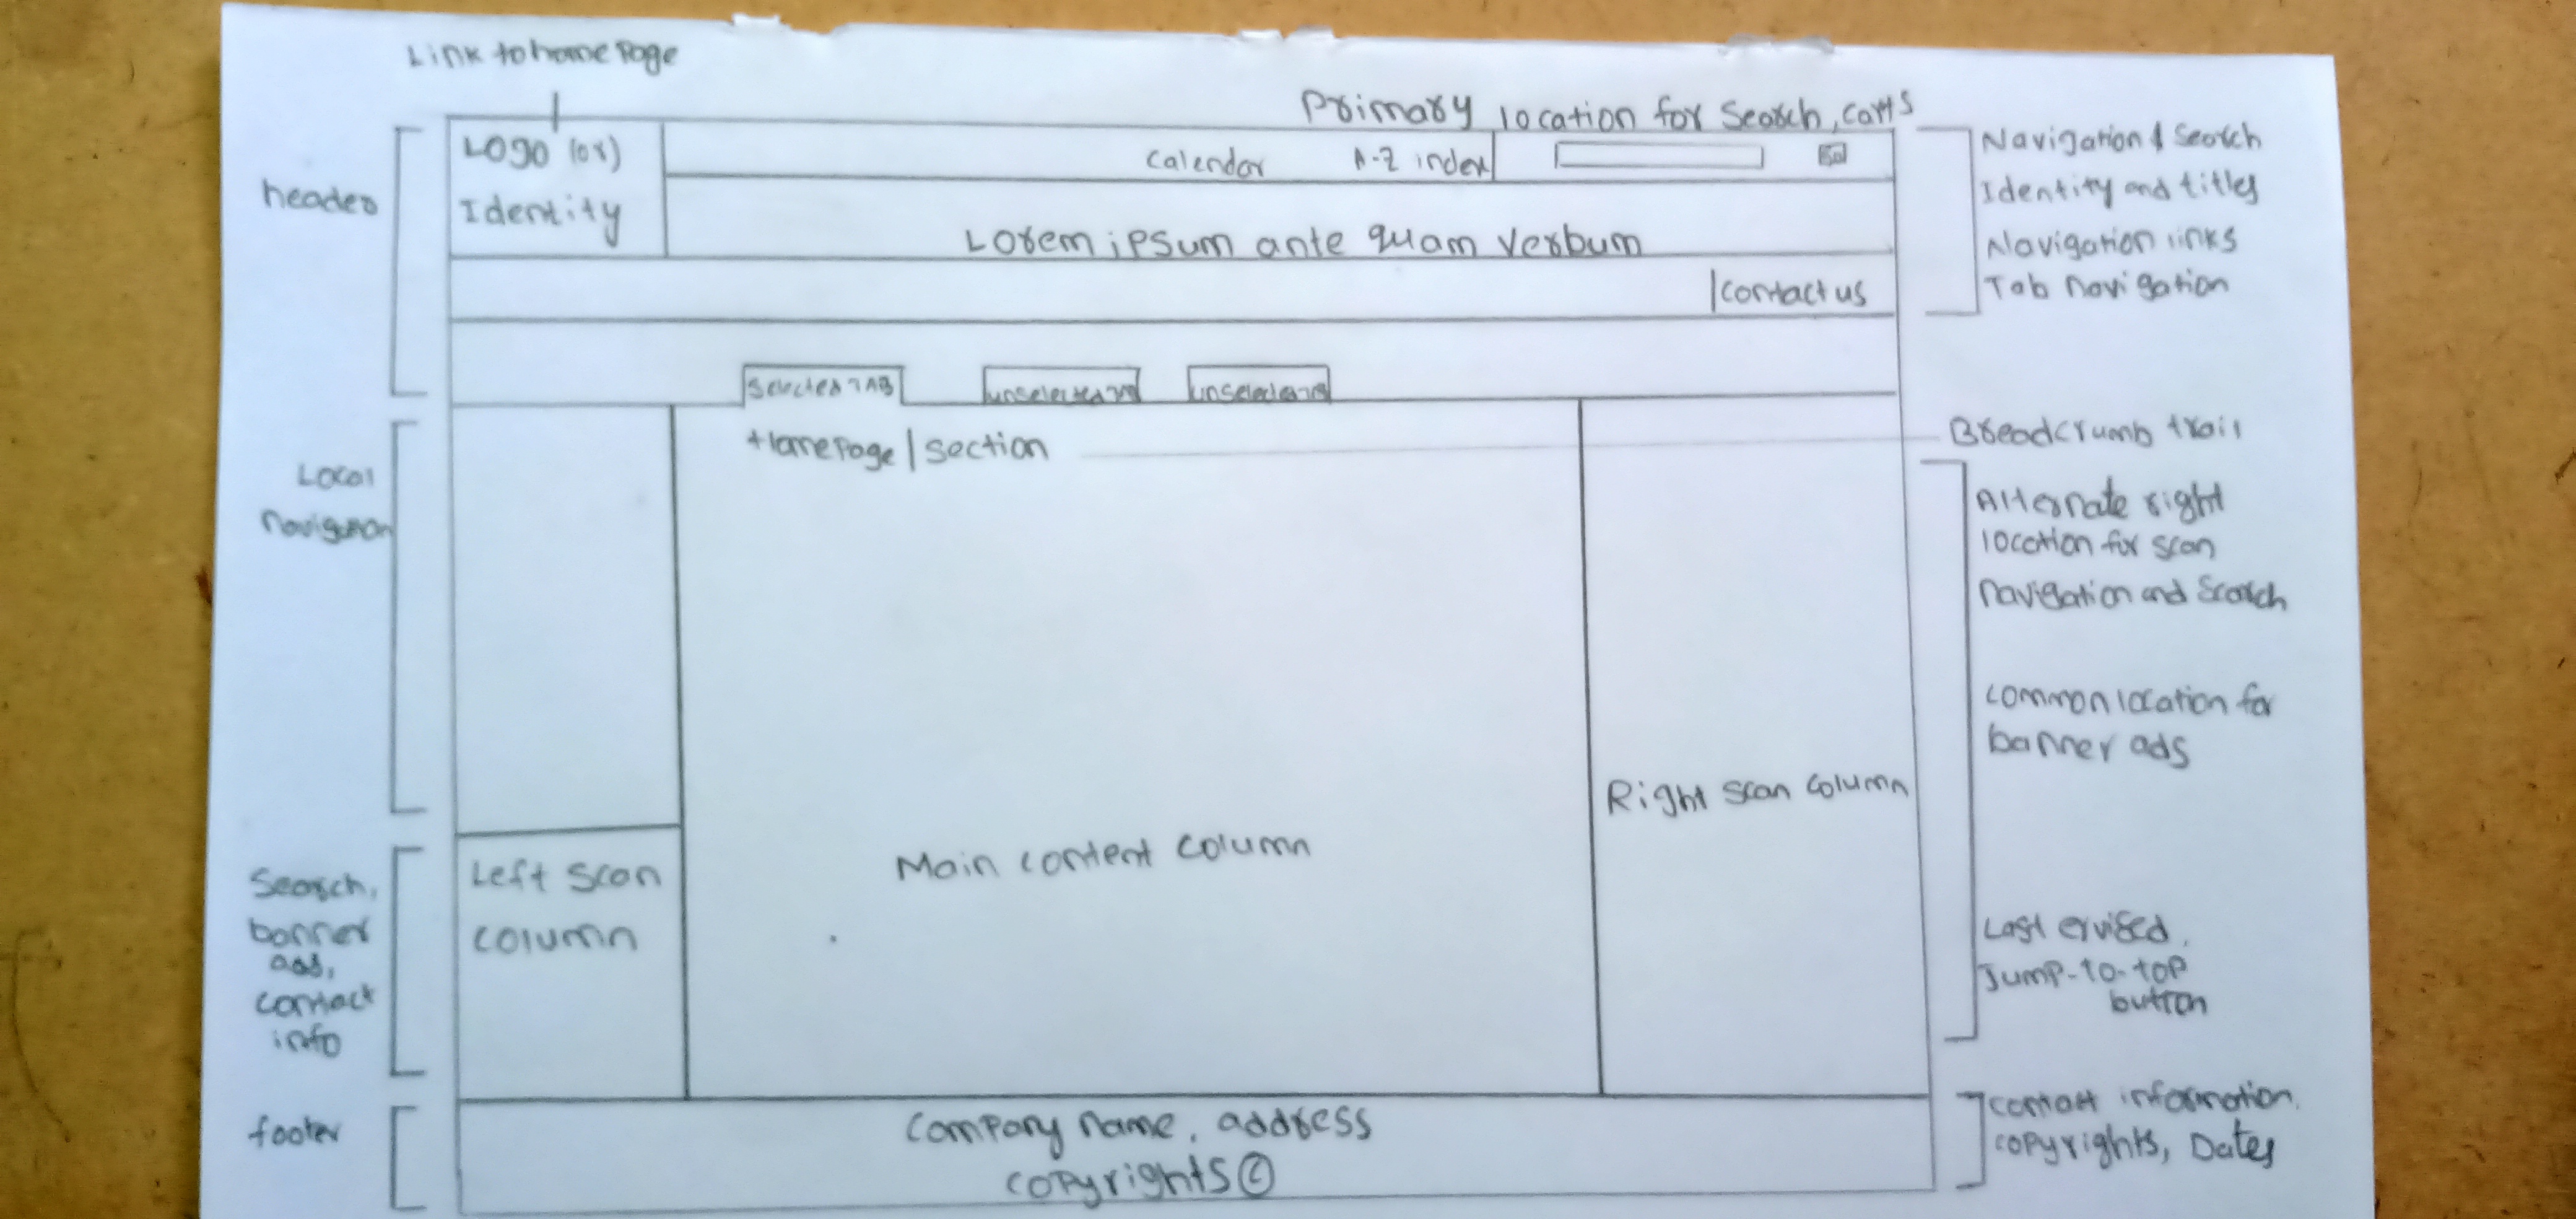 Link to home Page
Primary location for Search, carts
header
LOGO (or)
Identity
Calendar
A-Z index
Go
Lorem ipsum ante quam verbum
Contact us
Navigation & Search
Identity and titles
Navigation links
Tab navigation
Selected TAB
unselected TAB
unselected TAB
HomePage | section
Breadcrumb trail
Local
navigation
Alternate right
location for scan
navigation and Search
common location for
banner ads
Right scan column
Main content column
Search,
banner
ads,
contact
info
Left scan
column
Last ervised,
Jump-to-top
button
footer
Company name, address
copyrights ©
contact information,
copyrights, Dates